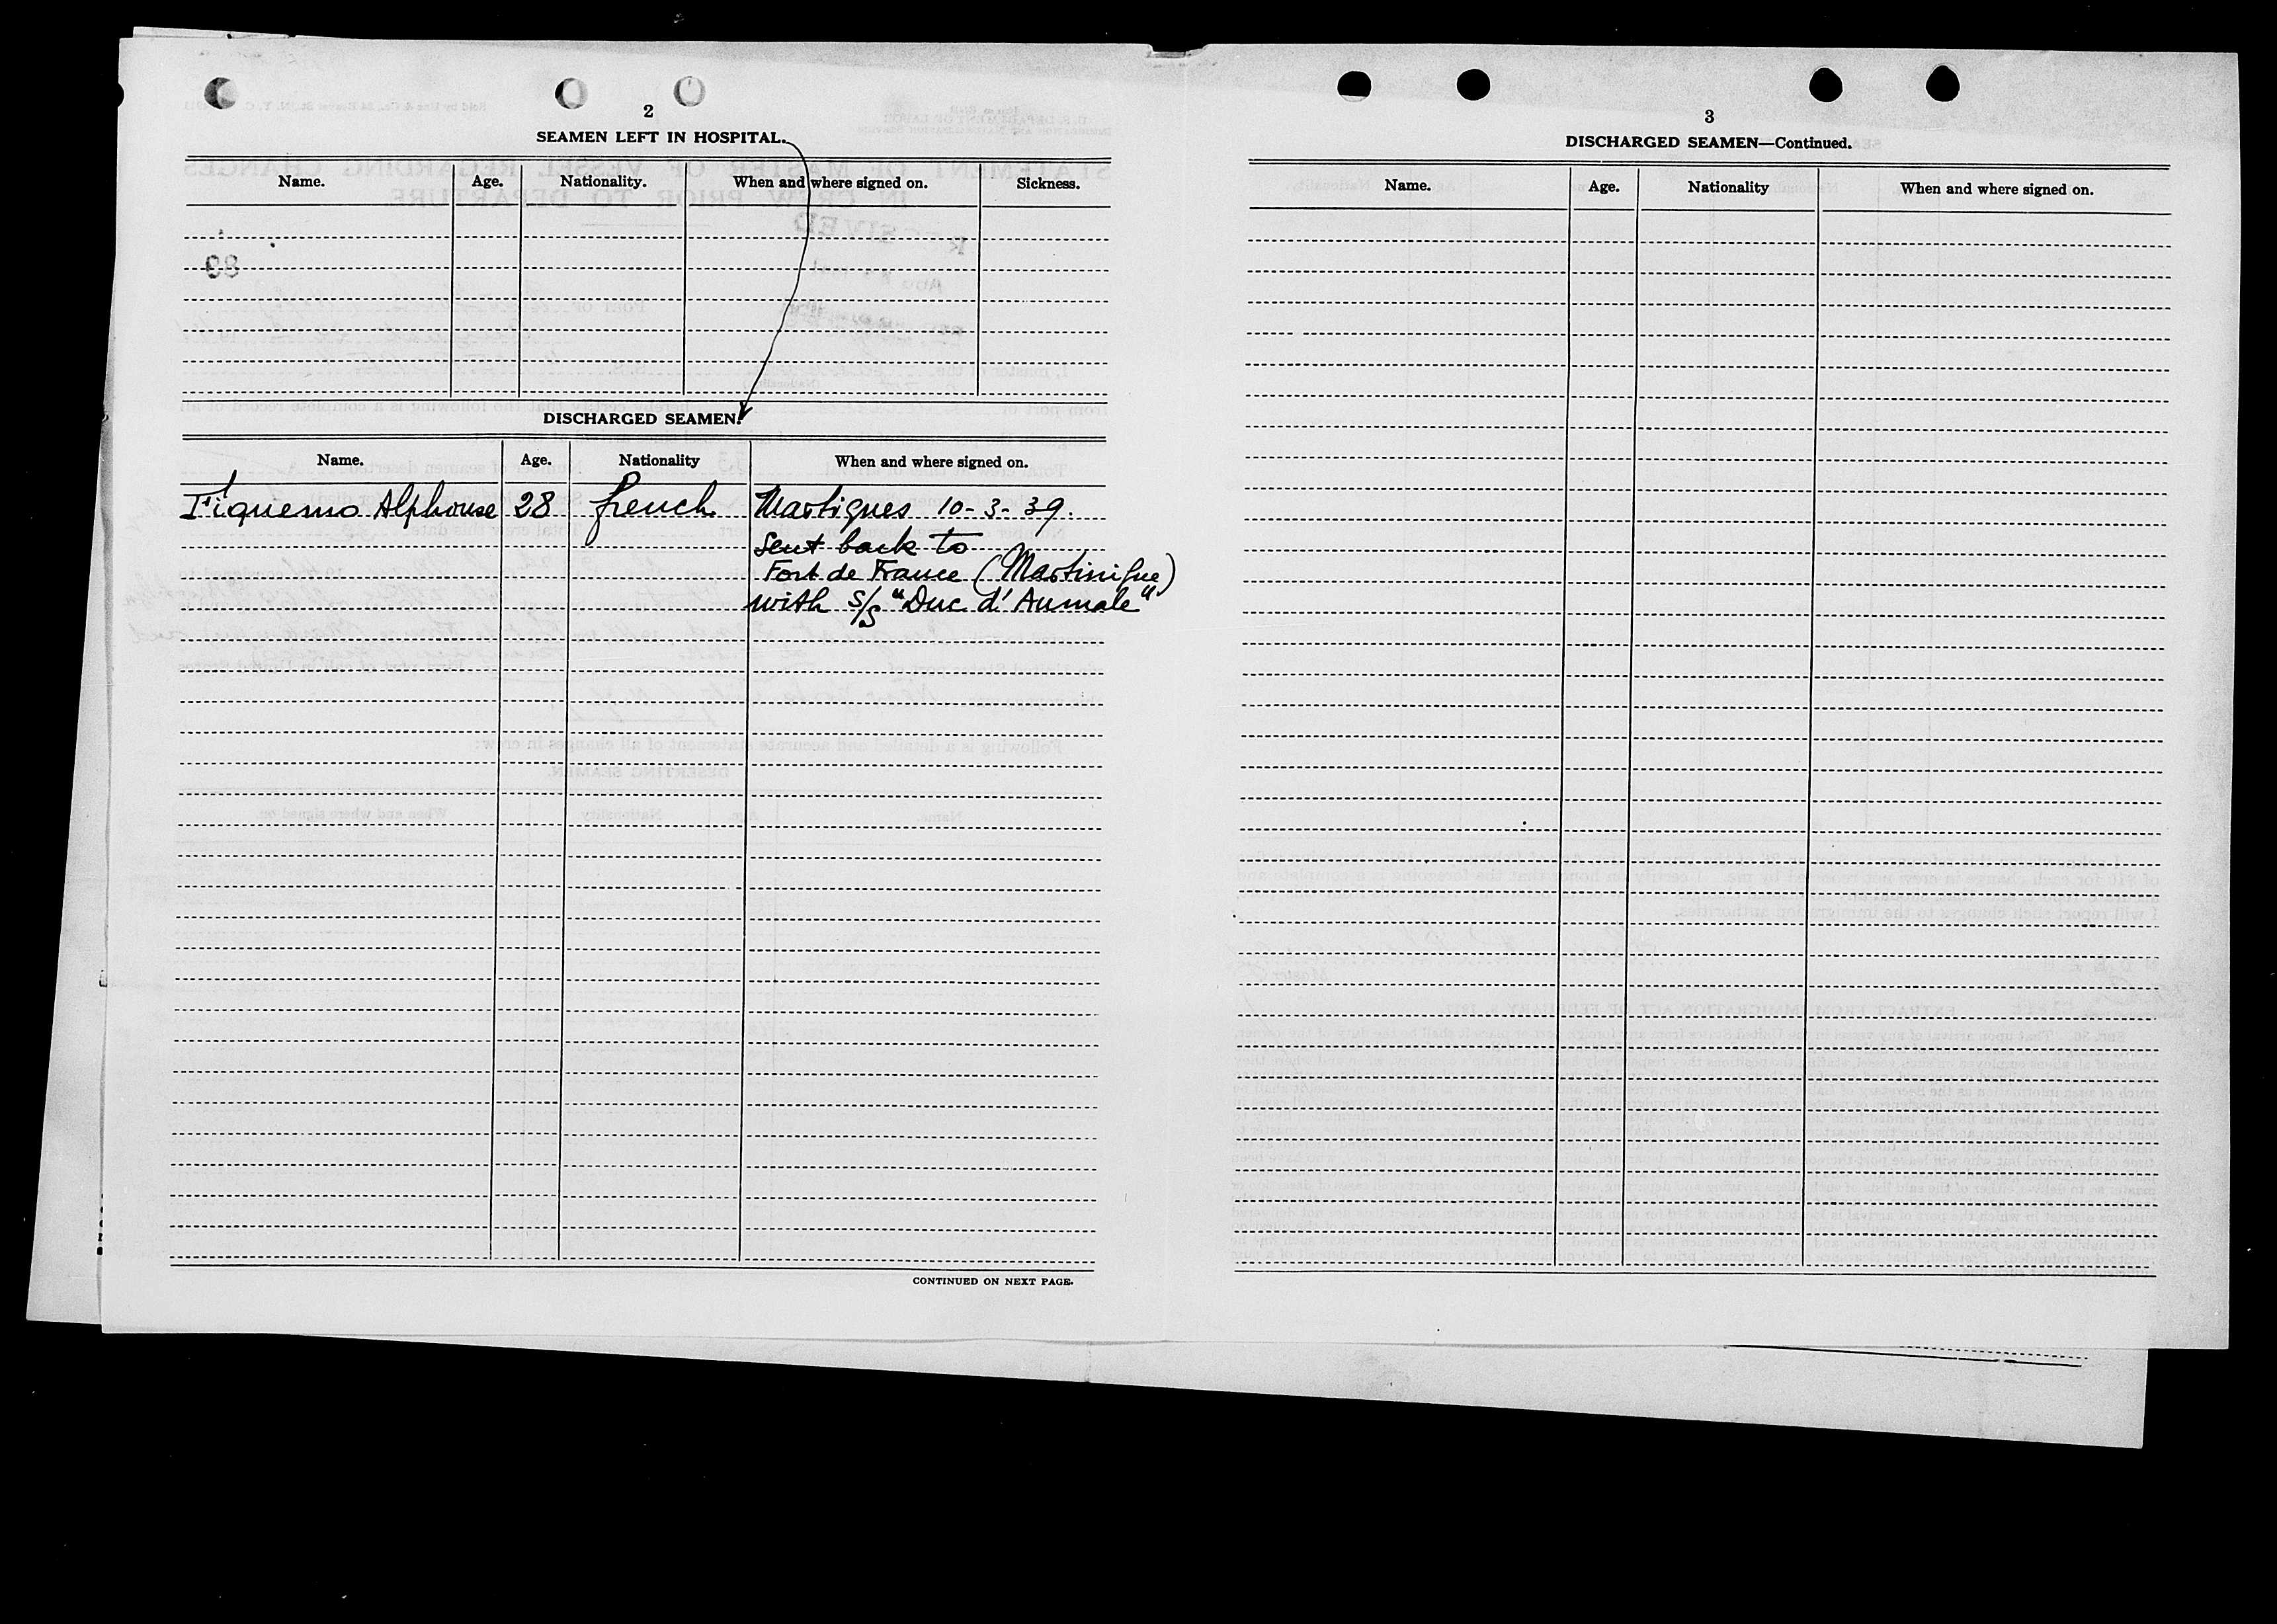 2
SEAMEN LEFT IN HOSPITAL.
Name. Age. Nationality. When and where signed on. Sickness.
DISCHARGED SEAMEN.
Name. Age. Nationality When and where signed on.
Figuemo Alphonse 28 french. Martigues 10-3-39.
sent back to
Fort de France (Martinique)
with S/S "Duc d'Aumale"
CONTINUED ON NEXT PAGE.
3
DISCHARGED SEAMEN—Continued.
Name. Age. Nationality When and where signed on.